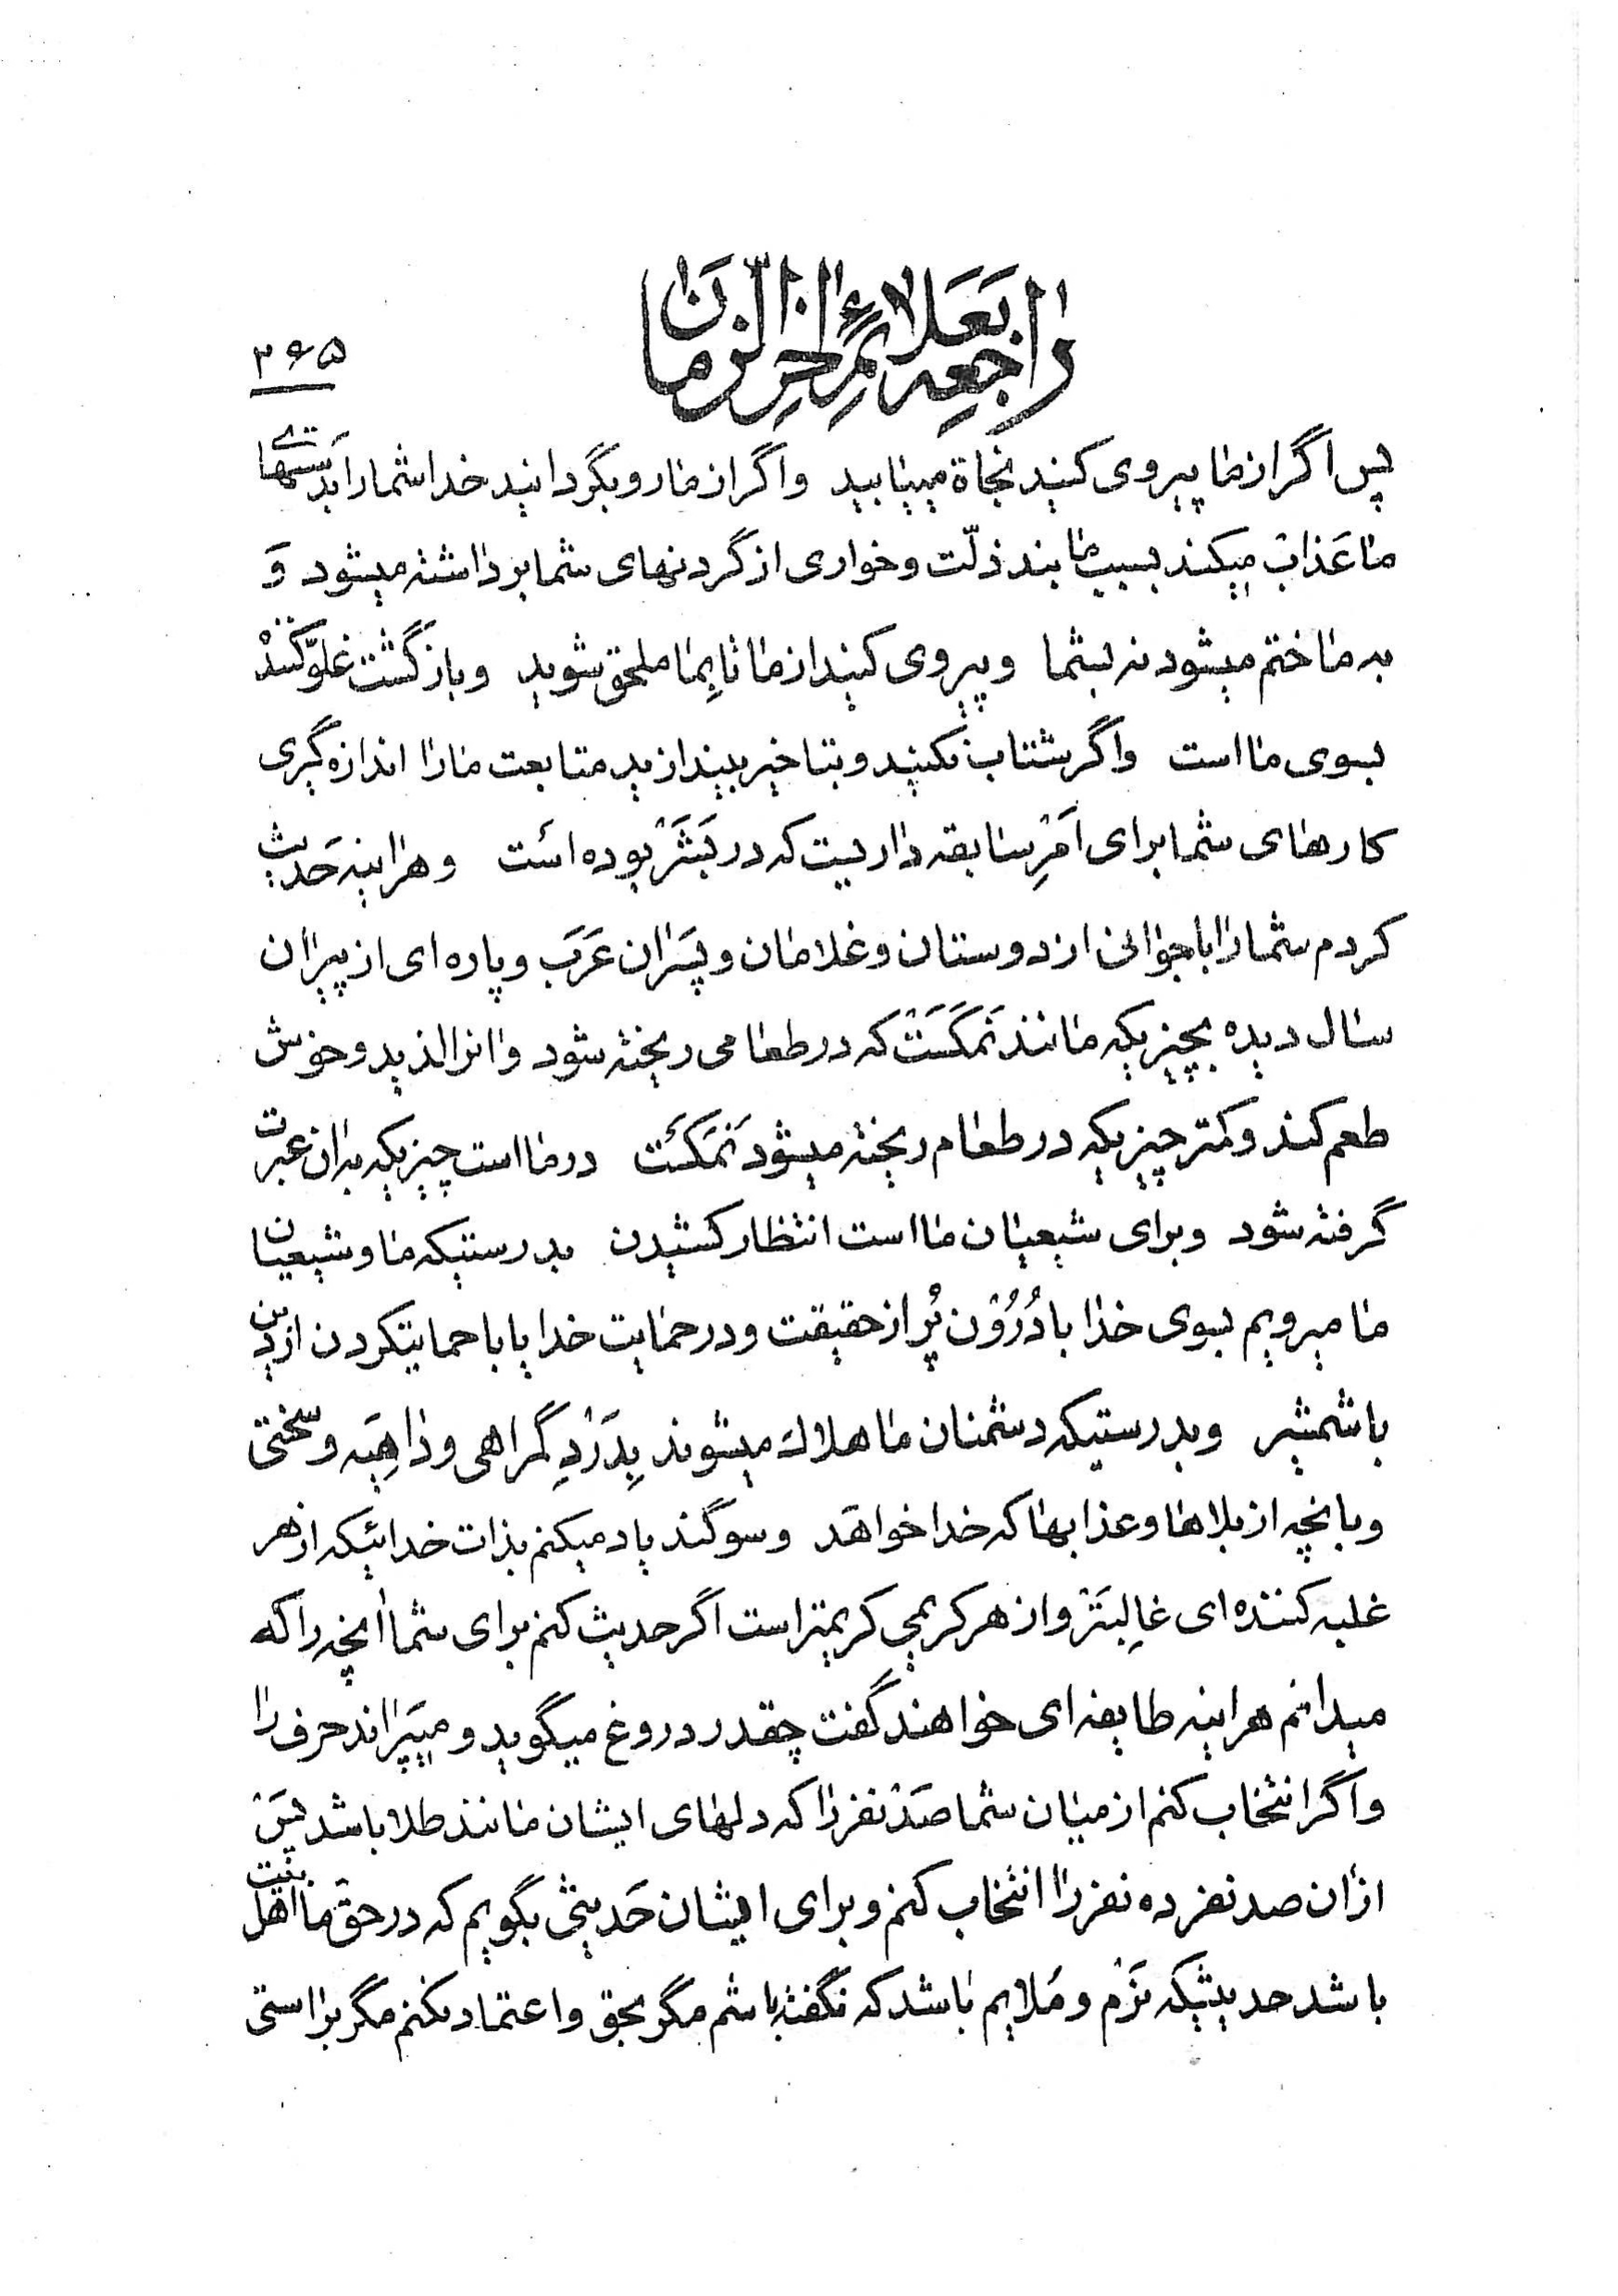 راجعه بعلائم اخر الزمان
۳۶۵
پس اگر از ما پیروی کنید نجاة مییابید و اگر از ما رو بگردانید خدا شما را بدستهای
ما عذاب میکند بسبب ما بند ذلّت و خواری از گردنهای شما برداشته میشود وَ
به ما ختم میشود نه بشما و پیروی کنید از ما تا بِما ملحق شوید و بازگشت غلوّ کننده
بسوی ما است و اگر شتاب نکنید و بتاخیر بیندازید متابعت ما را اندازه گیری
کارهای شما برای امرِ سابقه داریست که در بَشَرْ بوده است و هراینه حَدیث
کردم شما را با جوانی از دوستان و غلامان و پَسَران عَرَب و پاره ای از پیران
سال دیده بچیزیکه مانند نَمَکَسَتْ که در طعامی ریخته شود و انرا لذیذ و خوش
طعم کند و کمتر چیزیکه در طعام ریخته میشود نَمَکَست در ما است چیزیکه بدان عبرت
گرفته شود و برای شیعیان ما است انتظار کشیدن بدرستیکه ما و شیعیان
ما میرویم بسوی خدا با دُرُوْن پُر از حقیقت و در حمایت خدا یا با حمایتکردن از دین
با شمشیر و بدرستیکه دشمنان ما هلاک میشوند بِدَرْدِ گمراهی و داهِیَه و سختی
و بانچه از بلاها و عذابها که خدا خواهد و سوگند یاد میکنم بذات خدائیکه از هر
غلبه کننده ای غالِبتَرْ و از هر کریمی کریمتر است اگر حدیث کنم برای شما انچه را که
میدانم هراینه طایفه ای خواهند گفت چقدر دروغ میگوید و میپَراند حرف را
و اگر انتخاب کنم از میان شما صَدْ نفر را که دلهای ایشان مانند طلا باشد پَسْ
از ان صد نفر ده نفر را انتخاب کنم و برای ایشان حَدیثی بگویم که در حقّ ما اهل بیت
باشد حدیثیکه نَرْم و مُلایم باشد که نگفته باشم مگر بحق و اعتماد نکنم مگر براستی